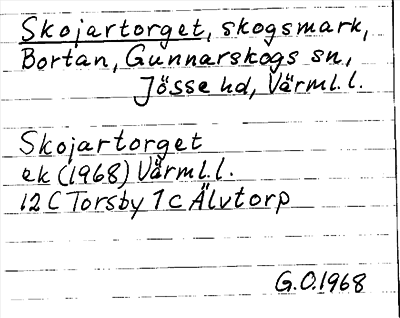 Skojartorget, skogsmark,
Bortan, Gunnarskogs sn,
Jösse hd, Värml.l.
Skojartorget
ek (1968) Värml.l.
12 C Torsby 7 c Älvtorp
G.O.1968